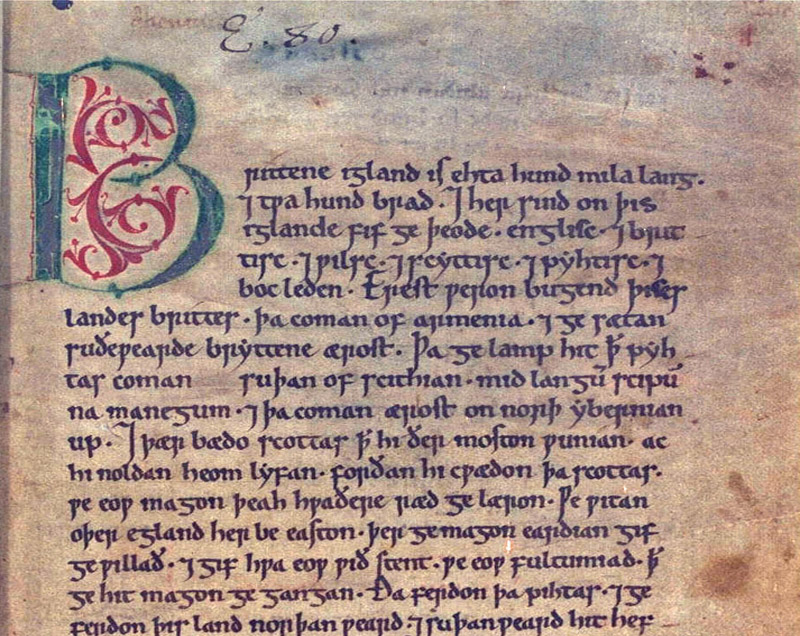 E. 80.
Brittene igland is ehta hund mila lang.
⁊ tƿa hund brad. ⁊ her sind on þis
iglande fif ge þeode. englisc. ⁊ brit
tisc. ⁊ ƿilsc. ⁊ scyttisc. ⁊ pyhtisc. ⁊
boc leden. Erest ƿeron bugend þises
landes brittes. þa coman of armenia. ⁊ ge sætan
suðeƿearde bryttene ærost. Þa ge lamp hit ꝥ pyh
tas coman suþan of scithian. mid langū scipū
na manegum. ⁊ þa coman ærost on norþ ybernian
up. ⁊ þær bædo scottas ꝥ hi ðer moston ƿunian. ac
hi noldan heom lyfan. forðan hi cƿædon þa scottas.
ƿe eoƿ magon þeah hƿaðere ræd ge læron. Ƿe ƿitan
oþer egland her be easton. þer ge magon eardian gif
ge ƿillað. ⁊ gif hƿa eoƿ ƿið stent. ƿe eoƿ fultumiad. ꝥ
ge hit magon ge gangan. Ða ferdon þa pihtas. ⁊ ge
ferdon þis land norþan ƿeard ⁊ suþan ƿeard hit hef